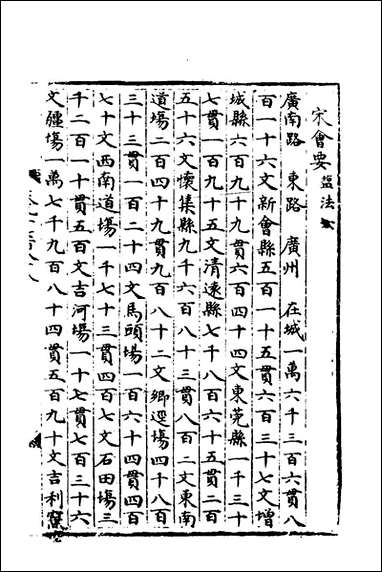 宋會要 鹽法
廣南路 東路 廣州 在城一萬六千三百六貫八
百一十六文新會縣五百一十五貫六百三十七文增
城縣六百九十九貫六百四十四文東莞縣一千三十
七貫一百九十五文清遠縣七千八百六十五貫二百
五十六文懷集縣九千六百八十三貫八百二文東南
道場二百四十九貫九百八十二文鄉逕場四十八百
三十三貫一百二十四文馬頭場一百六十四貫四百
七十文西南道場一千七十三貫四百七文石田場三
千二百一十貫五百文吉河場一十七貫七百三十六
文疆場一萬七千九百八十四貫五百九十文吉利